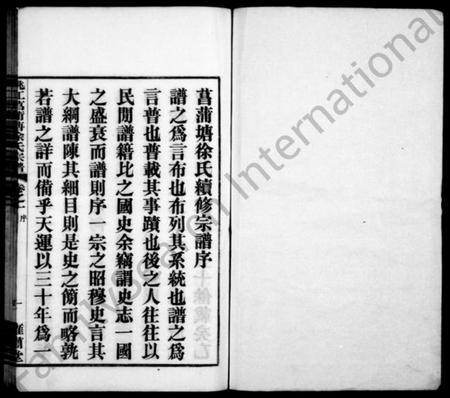 菖蒲塘徐氏續修宗譜序
譜之爲言布也布列其系統也譜之爲
言普也普載其事蹟也後之人往往以
民間譜籍比之國史余竊謂史志一國
之盛衰而譜則序一宗之昭穆史言其
大綱譜陳其細目則是史之簡而略孰
若譜之詳而備乎天運以三十年爲一
姚江菖蒲塘徐氏宗譜 卷之一 序
FamilySearch International